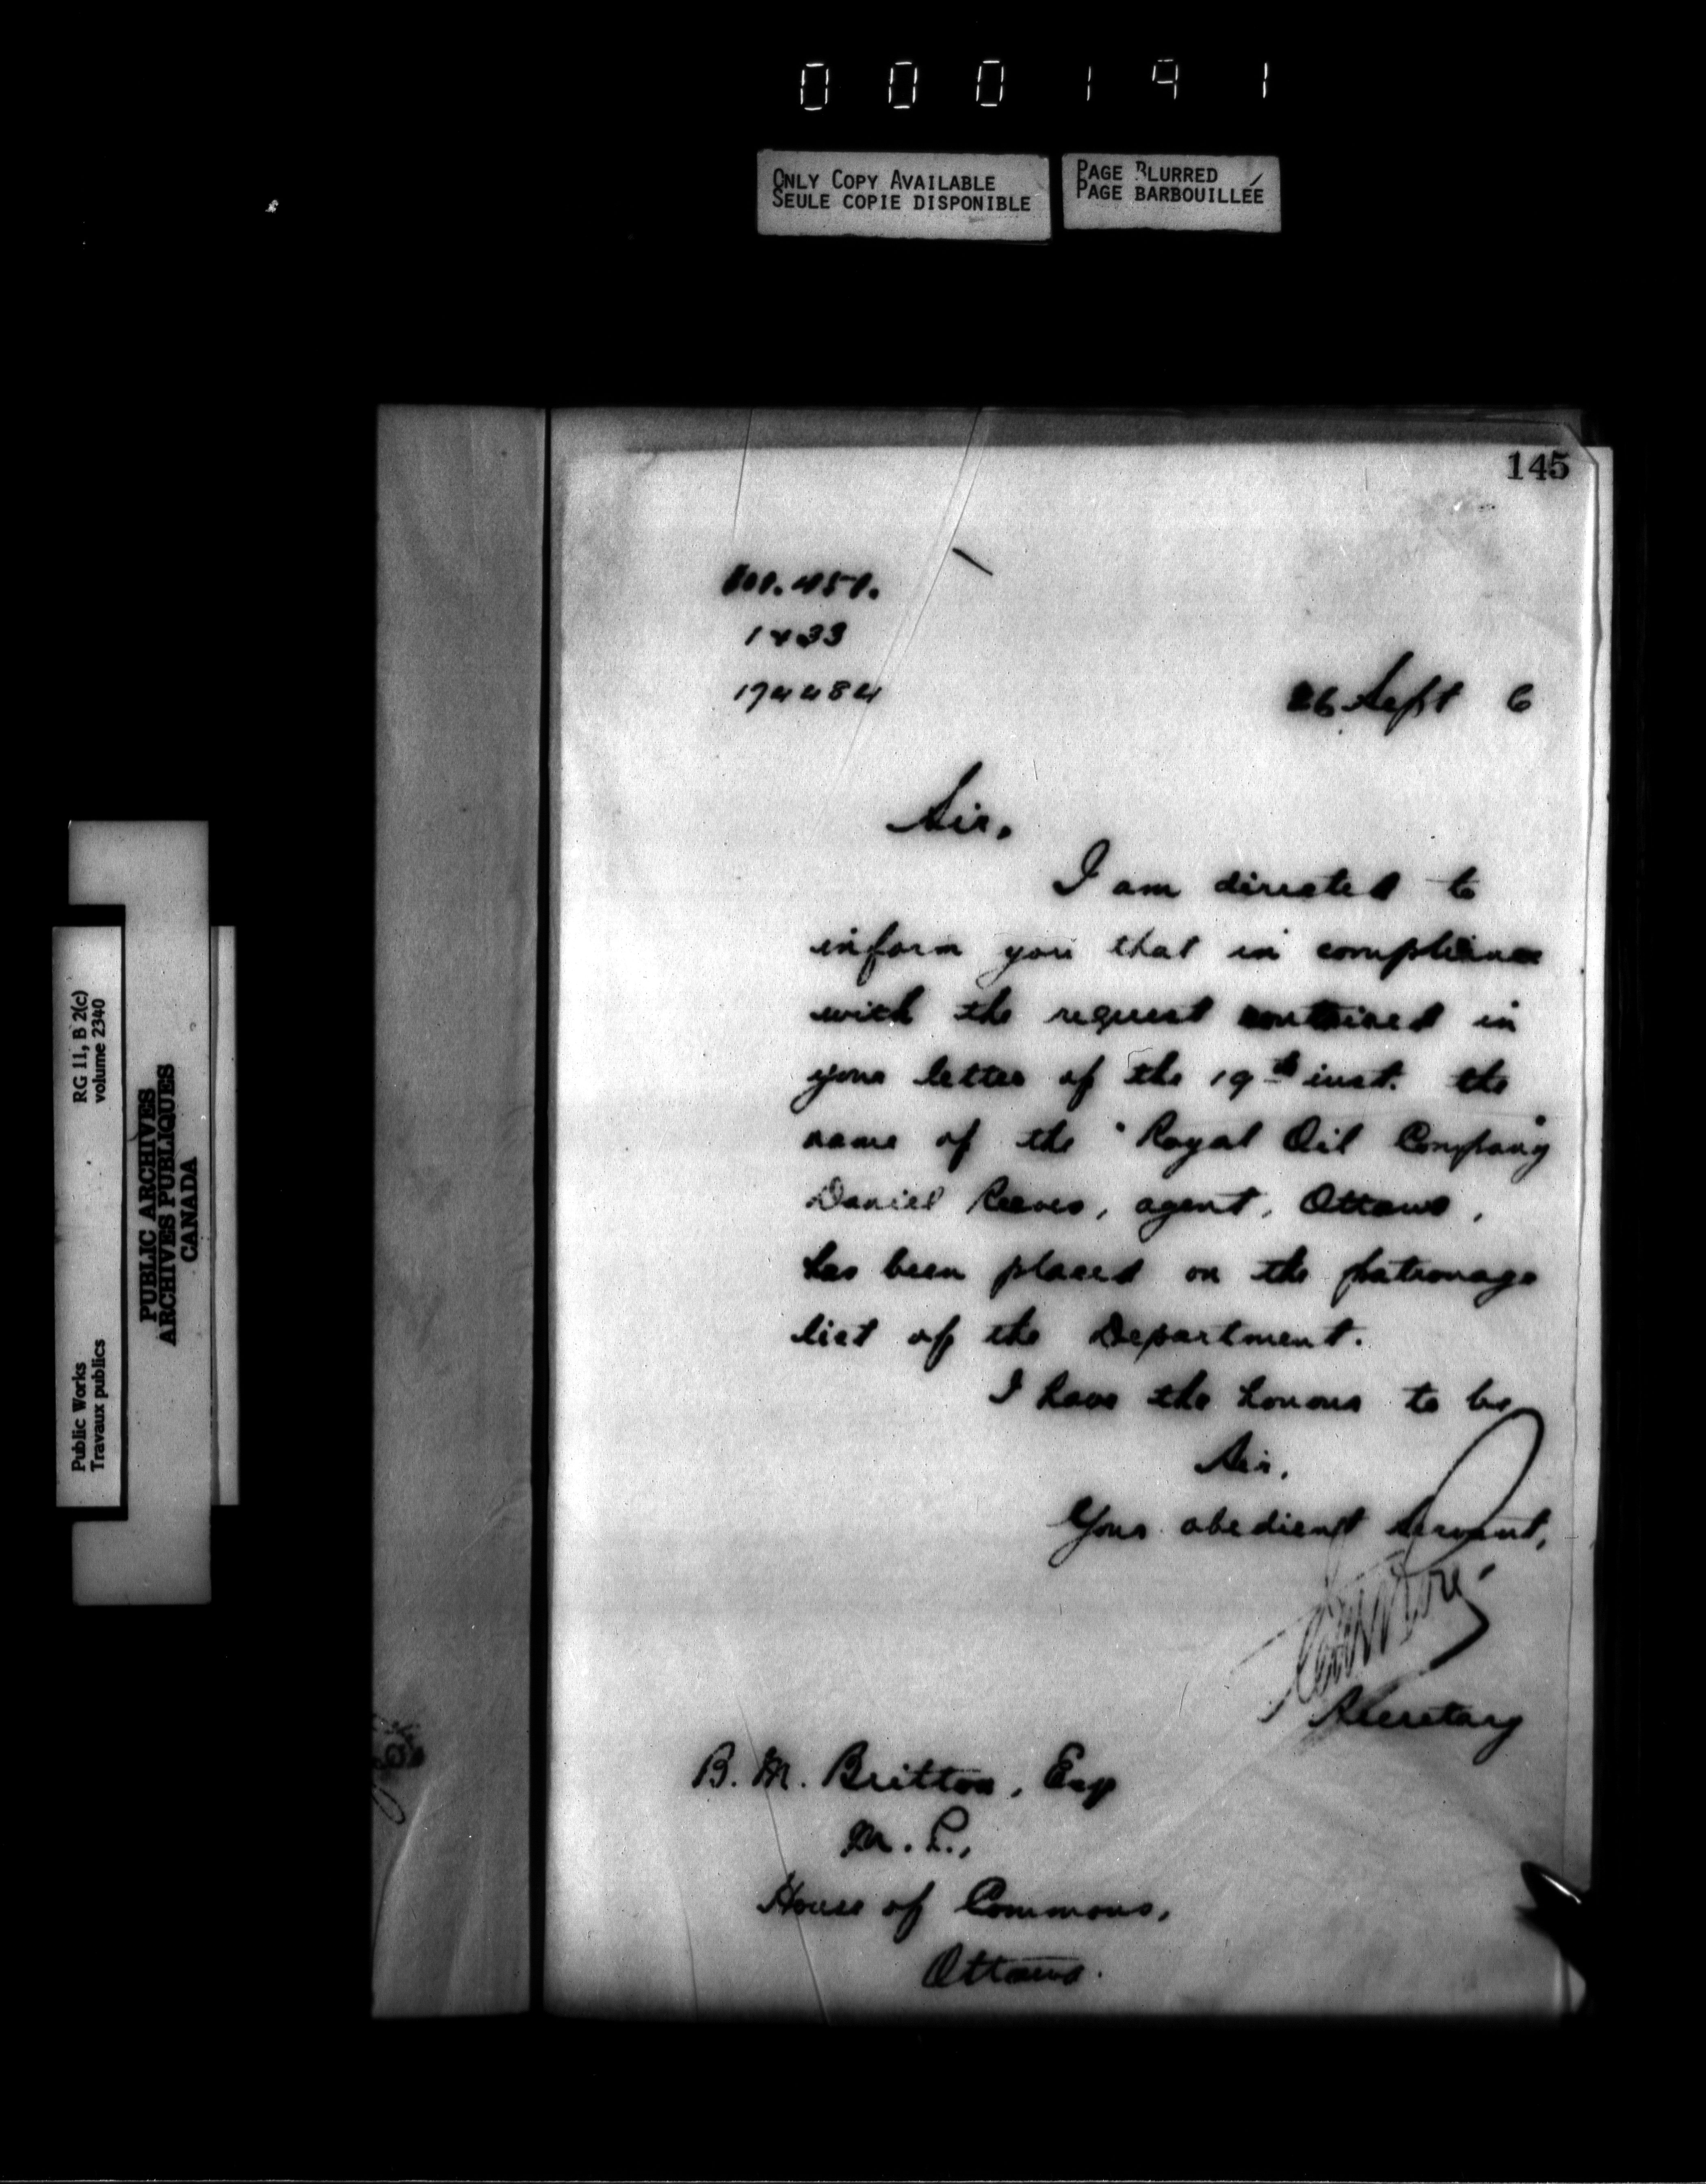 000191
ONLY COPY AVAILABLE
SEULE COPIE DISPONIBLE
PAGE BLURRED
PAGE BARBOUILLÉE
RG 11, B 2(c)
volume 2340
PUBLIC ARCHIVES
ARCHIVES PUBLIQUES
CANADA
Public Works
Travaux publics
145
1433
174484
26 Sept 6
Sir,
I am directed to
inform you that in compliance
with the request contained in
your letter of the 19th inst. the
name of the "Royal Oil Company"
Daniel Reeves, agent, Ottawa,
has been placed on the patronage
list of the Department.
I have the honour to be
Sir,
Your obedient servant,
Secretary
B. M. Britton, Esq
M. P.,
House of Commons,
Ottawa.